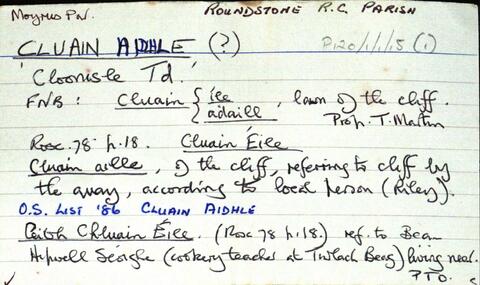 Moyrus P.N. ROUNDSTONE R.C. PARISH
CLUAIN AIDHLE (?) P120/1/1/15 (1)
'Cloonisle Td.'
FNB : Cluain { íle
adaill , lawn of the cliff.
Prop. T. Martin
Rosc. 78 p.18. Cluain Éile
Cluain aille, of the cliff, referring to cliff by
the quay, according to local person (Riley).
O.S. LIST '86 CLUAIN AIDHLE
Ceith Chluain Éile. (Rosc 78 p.18.) ref. to Bean
Hipwell Seóighe (cookery teacher at Twlach Beag) living near.
PTO.